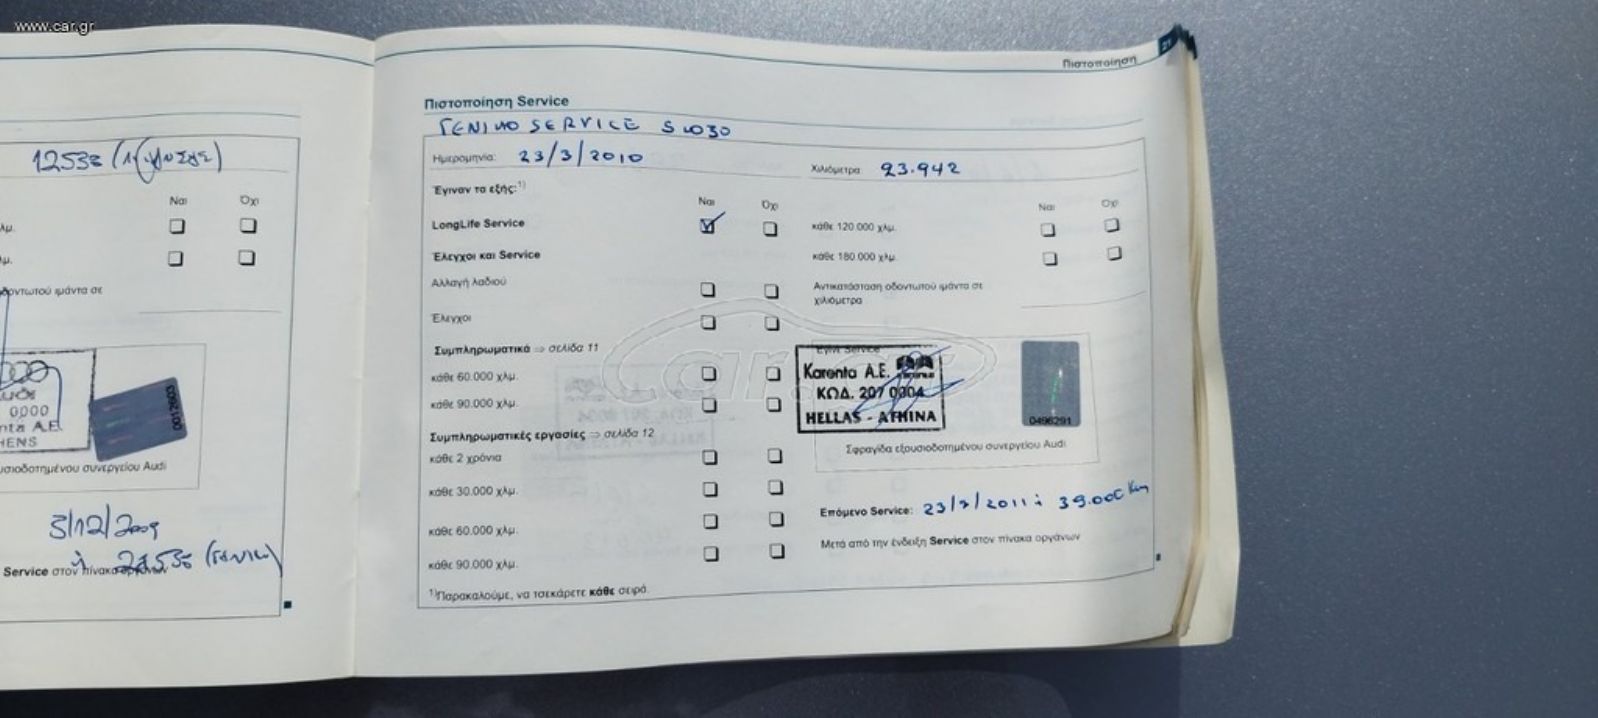 www.car.gr
12538
Ναι Όχι
λμ.
λμ.
οδοντωτού ιμάντα σε
0000
nta A.E.
HENS
0012603
υσιοδοτημένου συνεργείου Audi
3/12/2009
Service στον πίνακα οργάνων
21
Πιστοποίηση
Πιστοποίηση Service
ΓΕΝΙΚΟ SERVICE
Ημερομηνία: 23/3/2010
Χιλιόμετρα: 23.942
Έγιναν τα εξής:1)
Ναι Όχι
LongLife Service
Έλεγχοι και Service
Αλλαγή λαδιού
Έλεγχοι
Συμπληρωματικά ⇒ σελίδα 11
κάθε 60.000 χλμ.
κάθε 90.000 χλμ.
Συμπληρωματικές εργασίες ⇒ σελίδα 12
κάθε 2 χρόνια
κάθε 30.000 χλμ.
κάθε 60.000 χλμ.
κάθε 90.000 χλμ.
1)Παρακαλούμε, να τσεκάρετε κάθε σειρά.
Ναι Όχι
κάθε 120.000 χλμ.
κάθε 180.000 χλμ.
Αντικατάσταση οδοντωτού ιμάντα σε
χιλιόμετρα
Έγινε Service
Karenta A.E.
ΚΩΔ. 207 0004
HELLAS - ATHINA
0496291
Σφραγίδα εξουσιοδοτημένου συνεργείου Audi
Επόμενο Service: 23/3/2011 ή 39.000 Km
Μετά από την ένδειξη Service στον πίνακα οργάνων
car.gr